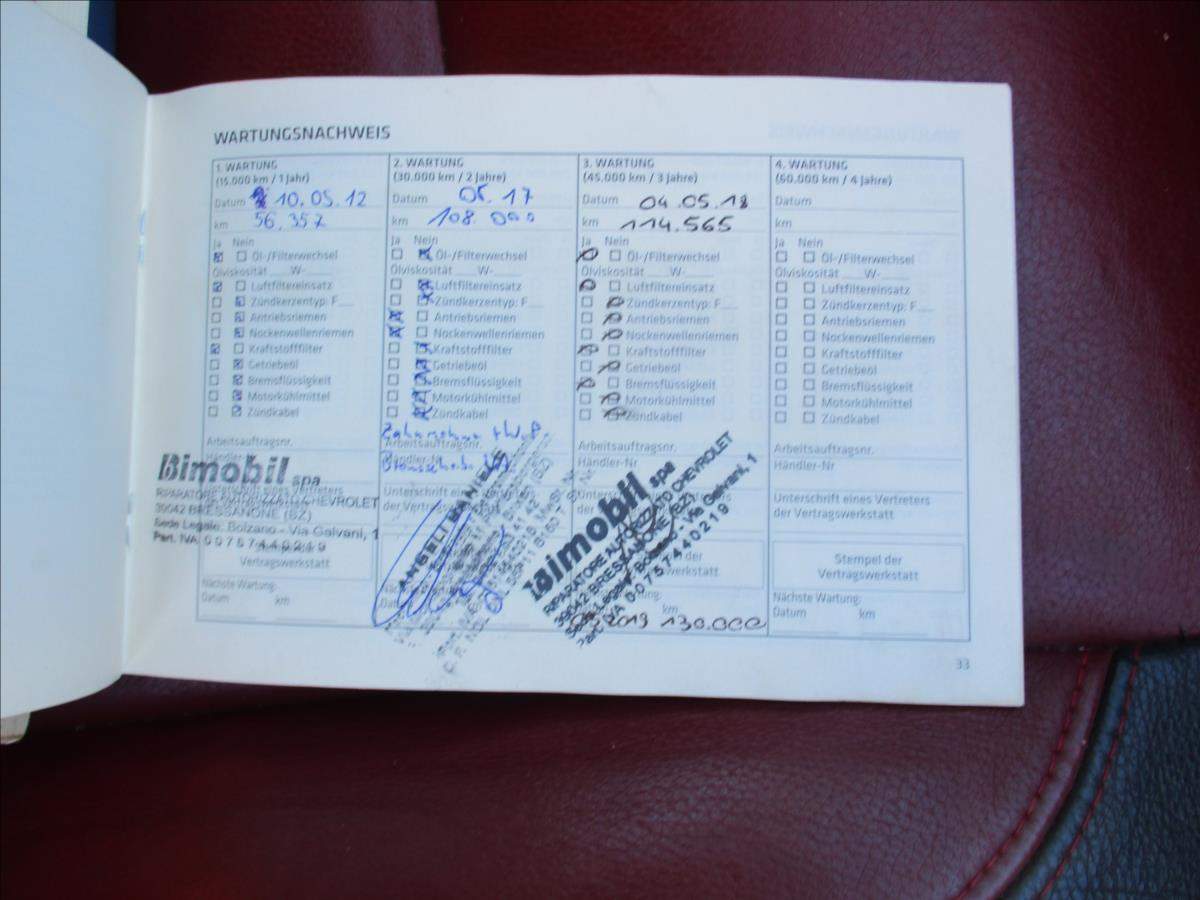 WARTUNGSNACHWEIS
1. WARTUNG
(15.000 km / 1 Jahr)
Datum 10.05.12
km 56.357
Ja Nein
Öl-/Filterwechsel
Ölviskosität ___W-___
Luftfiltereinsatz
Zündkerzentyp: F__
Antriebsriemen
Nockenwellenriemen
Kraftstofffilter
Getriebeöl
Bremsflüssigkeit
Motorkühlmittel
Zündkabel
Arbeitsauftragsnr.
Bimobil spa
RIPARATORE AUTORIZZATO CHEVROLET
39042 BRESSANONE (BZ)
Sede Legale: Bolzano - Via Galvani, 1
Part. IVA 00757440219
Vertragswerkstatt
Nächste Wartung:
Datum km
2. WARTUNG
(30.000 km / 2 Jahre)
Datum 05.17
km 108.000
Ja Nein
Öl-/Filterwechsel
Ölviskosität ___W-___
Luftfiltereinsatz
Zündkerzentyp: F__
Antriebsriemen
Nockenwellenriemen
Kraftstofffilter
Getriebeöl
Bremsflüssigkeit
Motorkühlmittel
Zündkabel
Arbeitsauftragsnr.
Händler-Nr
Unterschrift eines
der Vertragswerkstatt
3. WARTUNG
(45.000 km / 3 Jahre)
Datum 04.05.18
km 114.565
Ja Nein
Öl-/Filterwechsel
Ölviskosität ___W-___
Luftfiltereinsatz
Zündkerzentyp: F__
Antriebsriemen
Nockenwellenriemen
Kraftstofffilter
Getriebeöl
Bremsflüssigkeit
Motorkühlmittel
Zündkabel
Arbeitsauftragsnr.
Händler-Nr
Bimobil spa
RIPARATORE AUTORIZZATO CHEVROLET
39042 BRESSANONE (BZ)
Sede Legale: Bolzano - Via Galvani, 1
Part. IVA 00757440219
km
2019 130.000
4. WARTUNG
(60.000 km / 4 Jahre)
Datum
km
Ja Nein
Öl-/Filterwechsel
Ölviskosität ___W-___
Luftfiltereinsatz
Zündkerzentyp: F__
Antriebsriemen
Nockenwellenriemen
Kraftstofffilter
Getriebeöl
Bremsflüssigkeit
Motorkühlmittel
Zündkabel
Arbeitsauftragsnr.
Händler-Nr
Unterschrift eines Vertreters
der Vertragswerkstatt
Stempel der
Vertragswerkstatt
Nächste Wartung:
Datum km
33